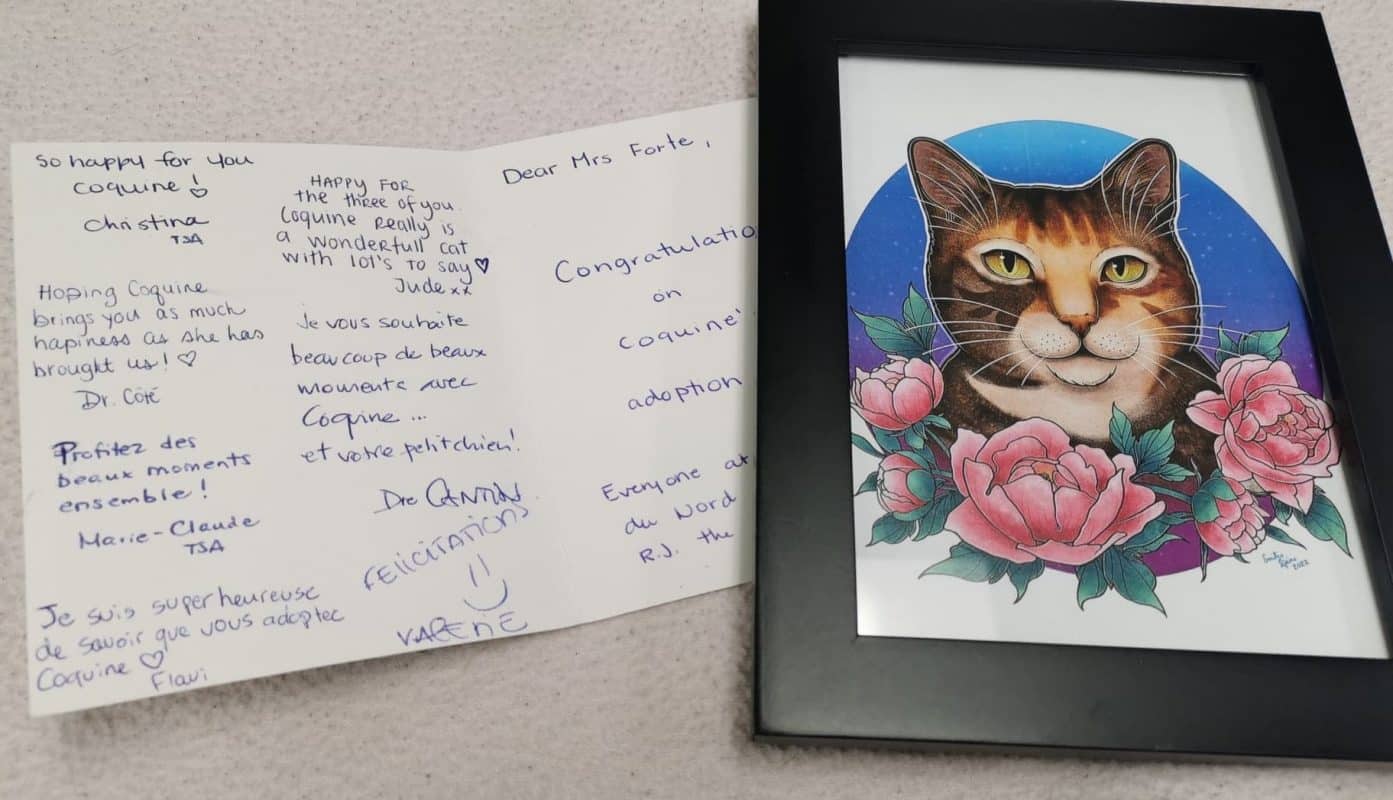 So happy for you
Coquine!
Christina
TSA
Hoping Coquine
brings you as much
hapiness as she has
brought us!
Dr. Côté
Profitez des
beaux moments
ensemble!
Marie-Claude
TSA
Je suis super heureuse
de savoir que vous adoptez
Coquine
Flavi
HAPPY FOR
the three of you
Coquine Really is
a wonderfull cat
with lot's to say
Jude xx
Je vous souhaite
beaucoup de beaux
moments avec
Coquine ...
et votre petit chien!
Dre
FELICITATIONS
VALÉRIE
Dear Mrs Forte,
Congratulatio
on
Coquine'
adoption
Everyone at
du Nord
R.J. the
2022